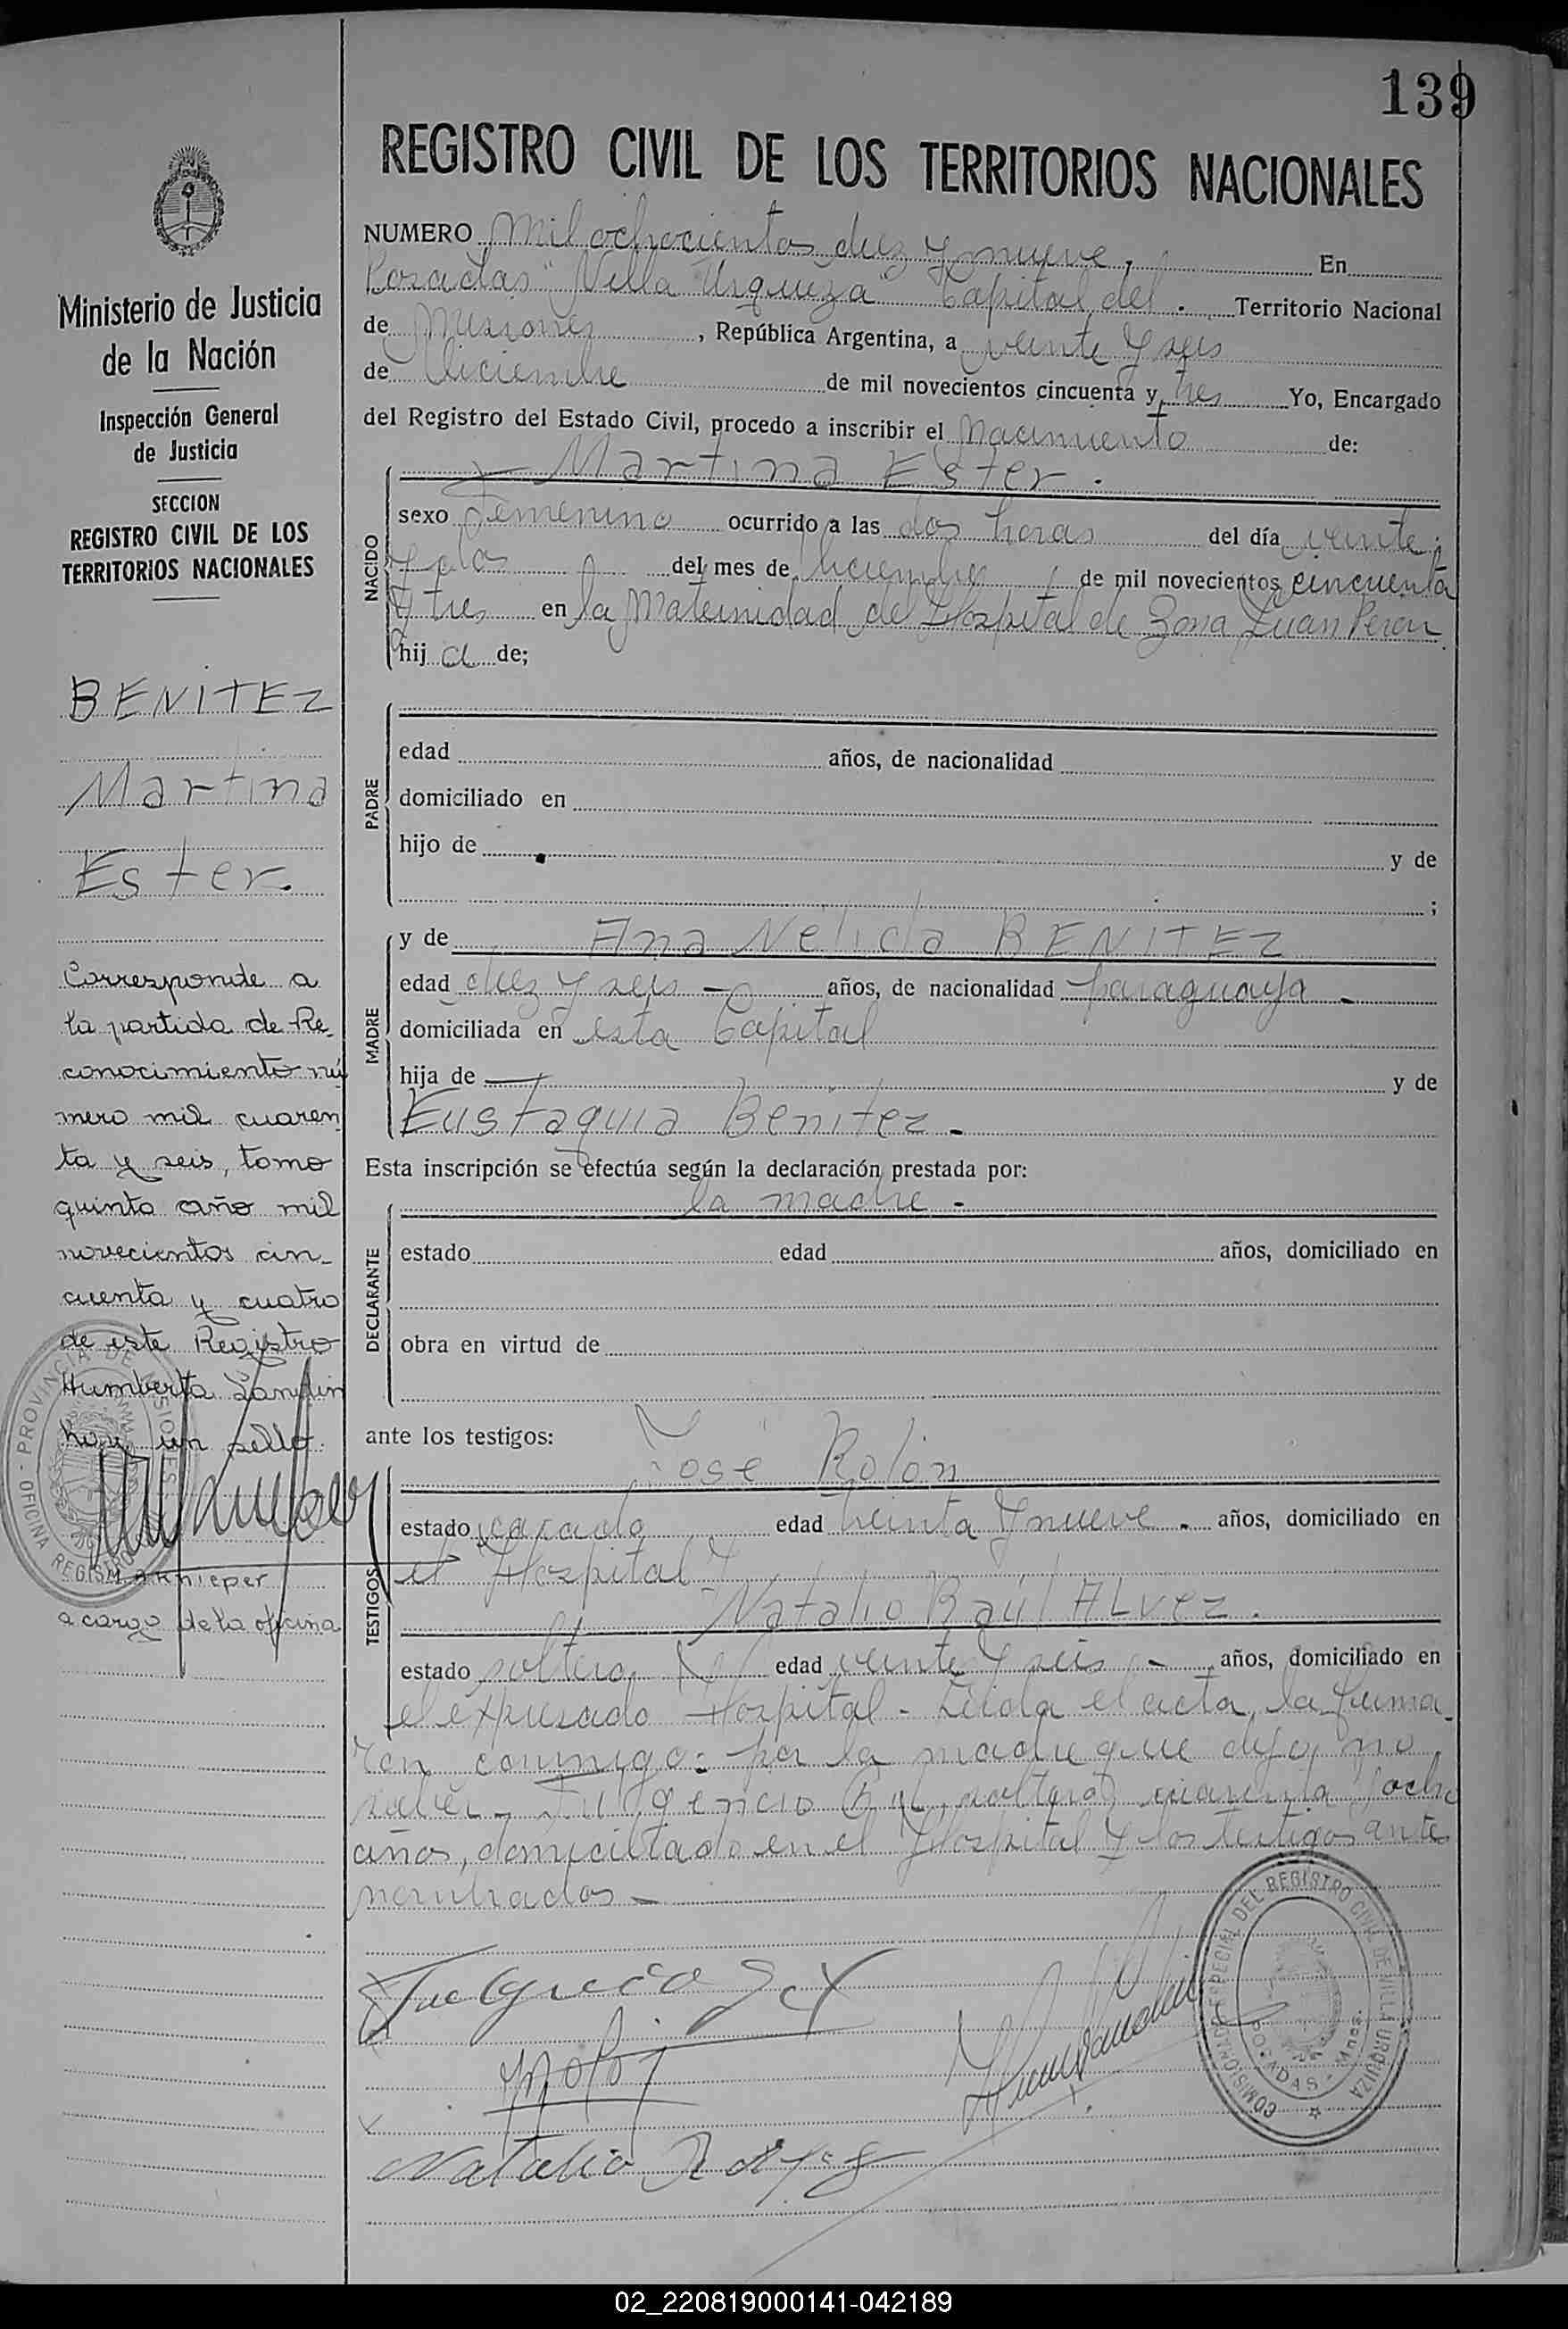 139
REGISTRO CIVIL DE LOS TERRITORIOS NACIONALES
Ministerio de Justicia
de la Nación
Inspección General
de Justicia
SECCION
REGISTRO CIVIL DE LOS
TERRITORIOS NACIONALES
BENITEZ
Martina
Ester.
Corresponde a
la partida de Re-
conocimiento nú
mero mil cuaren
ta y seis, tomo
quinto año mil
novecientos cin-
cuenta y cuatro
de este Registro
Humberto
hay un sello.
PROVINCIA DE MISIONES
OFICINA REGISTRO
a cargo de la oficina
NUMERO Mil ochocientos diez y nueve, En
Posadas "Villa Urquiza" Capital del. Territorio Nacional
de Misiones, República Argentina, a veinte y seis
de Diciembre de mil novecientos cincuenta y tres Yo, Encargado
del Registro del Estado Civil, procedo a inscribir el Nacimiento de:
NACIDO
Martina Ester.
sexo Femenino ocurrido a las dos horas del día veinte
y dos del mes de Diciembre, de mil novecientos cincuenta
y tres en la Maternidad del Hospital de Zona Juan Peron
hij a de;
PADRE
edad años, de nacionalidad
domiciliado en
hijo de y de
;
MADRE
y de Ana Nélida BENITEZ
edad diez y seis - años, de nacionalidad paraguaya -
domiciliada en esta Capital
hija de — y de
Eustaquia Benitez -
Esta inscripción se efectúa según la declaración prestada por:
la madre -
DECLARANTE
estado edad años, domiciliado en
obra en virtud de
ante los testigos:
TESTIGOS
José Rolón
estado casado edad treinta y nueve. años, domiciliado en
el Hospital
Natalio Raúl ALvez.
estado soltero edad veinte y seis - años, domiciliado en
el expresado Hospital - Leida el acta, la firma-
ron conmigo: por la madre que dijo no
saber - Fulgencio soltero, cuarenta y ocho
años, domiciliado en el Hospital y los testigos ante
nombrados -
Natalio R
COMISIONADO ESPECIAL DEL REGISTRO CIVIL DE VILLA URQUIZA
POSADAS - Mnes.
02_220819000141-042189